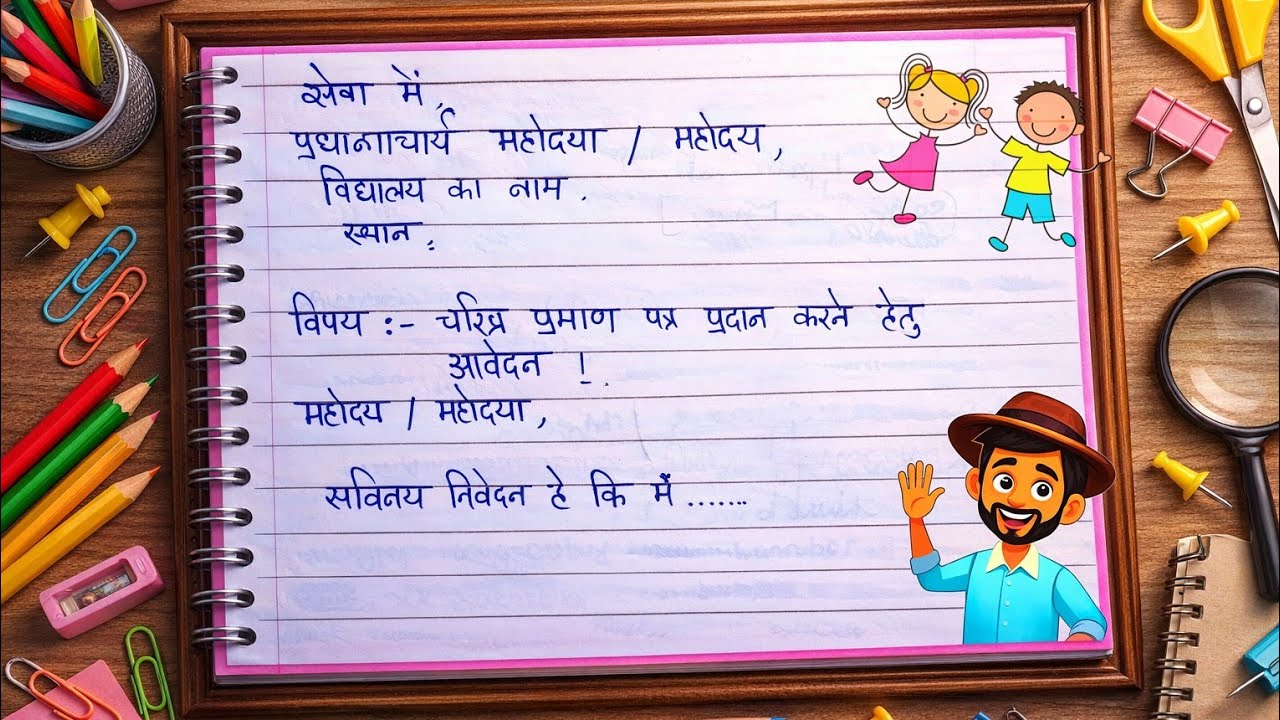 सेवा में,
प्रधानाचार्य महोदया / महोदय,
विद्यालय का नाम .
स्थान ,
विषय :- चरित्र प्रमाण पत्र प्रदान करने हेतु
आवेदन !
महोदय / महोदया,
सविनय निवेदन है कि मैं .......